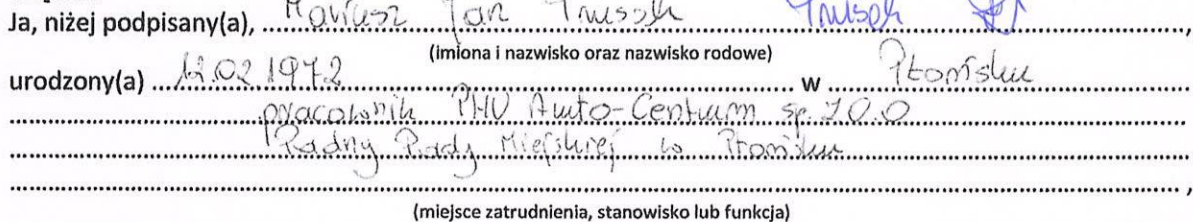 Ja, niżej podpisany(a), Mariusz Jan Trussk Trussk
(imiona i nazwisko oraz nazwisko rodowe)
urodzony(a) 12.02.1972 w Płońsku
pracownik PHU Auto-Centrum sp. z o.o
Radny Rady Miejskiej w Płońsku
(miejsce zatrudnienia, stanowisko lub funkcja)